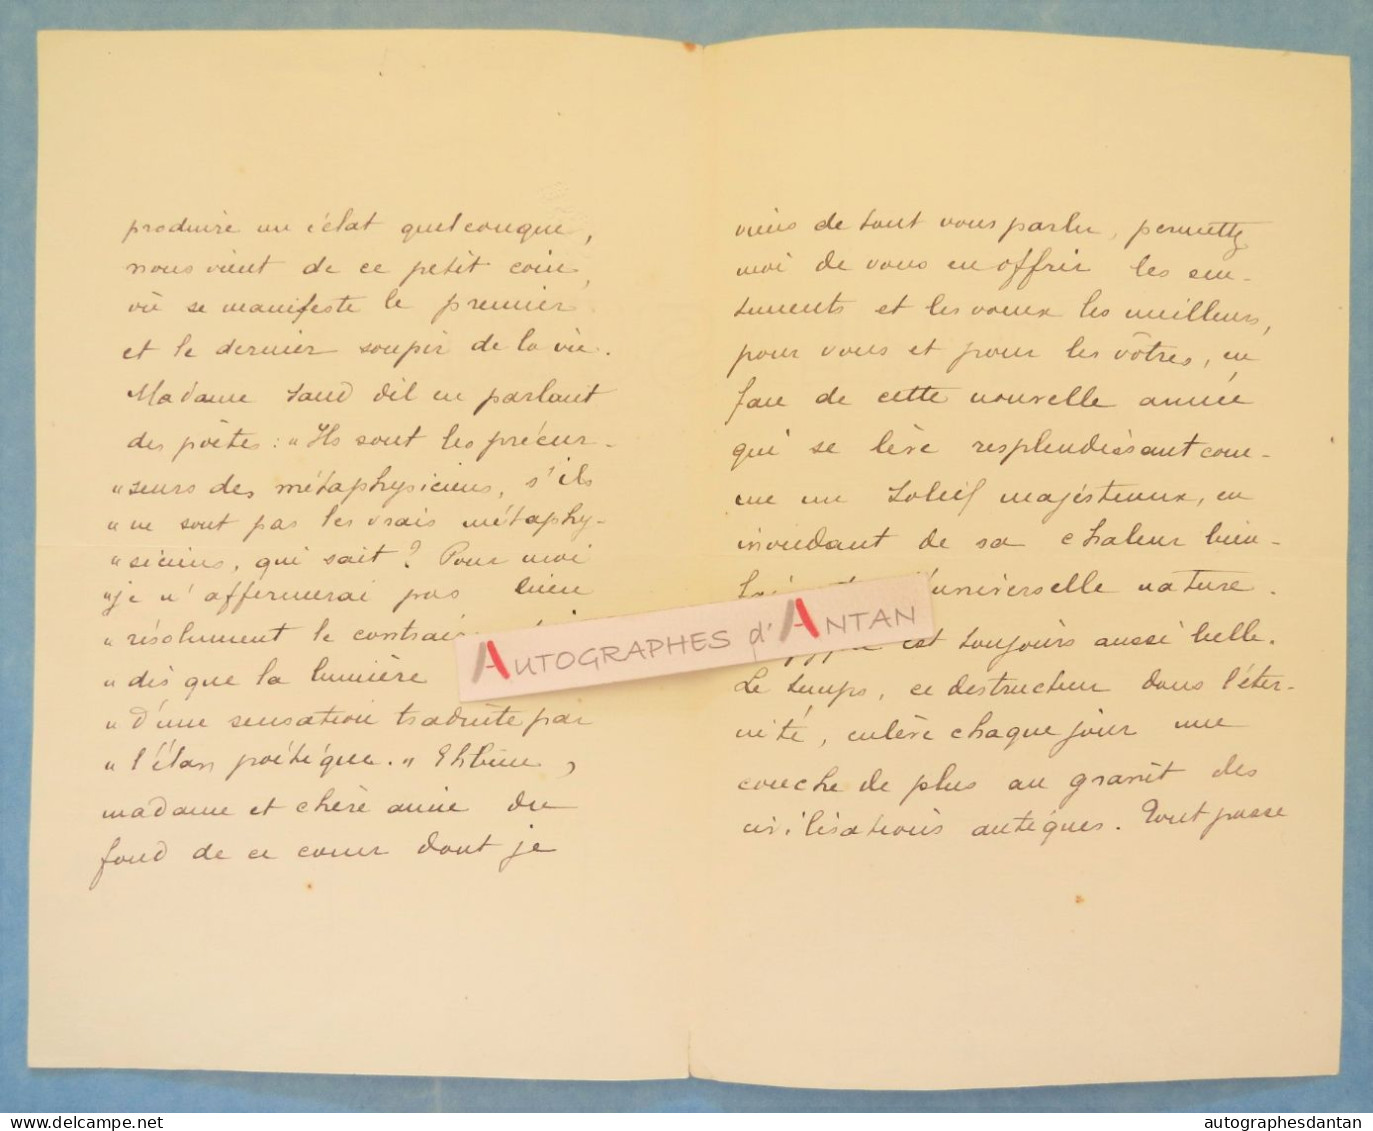 produire un éclat quelconque,
nous vient de ce petit coin,
où se manifeste le premier
et le dernier soupir de la vie.
Madame Sand dit en parlant
des poètes : "Ils sont les précur-
"seurs des métaphysiciens, s'ils
"ne sont pas les vrais métaphy-
"siciens, qui sait ? Pour moi
"je n'affermerai pas bien
"résolument le contrai
"dis que la lumière
"d'une sensation traduite par
"l'élan poétique." Eh bien,
madame et chère amie du
fond de ce coeur dont je
viens de tout vous parler, permettez
moi de vous en offrir les sen-
timents et les voeux les meilleurs,
pour vous et pour les vôtres, en
face de cette nouvelle année
qui se lève resplendissant com-
me un soleil majesteux, en
inondant de sa chaleur bien-
l'universelle nature.
est toujours aussi belle.
Le temps, ce destructeur dans l'éter-
nité, enlève chaque jour une
couche de plus au granit des
civilisations antiques. Tout passe
AUTOGRAPHES d'ANTAN
autographesdantan
delcampe.net
autographesdantan